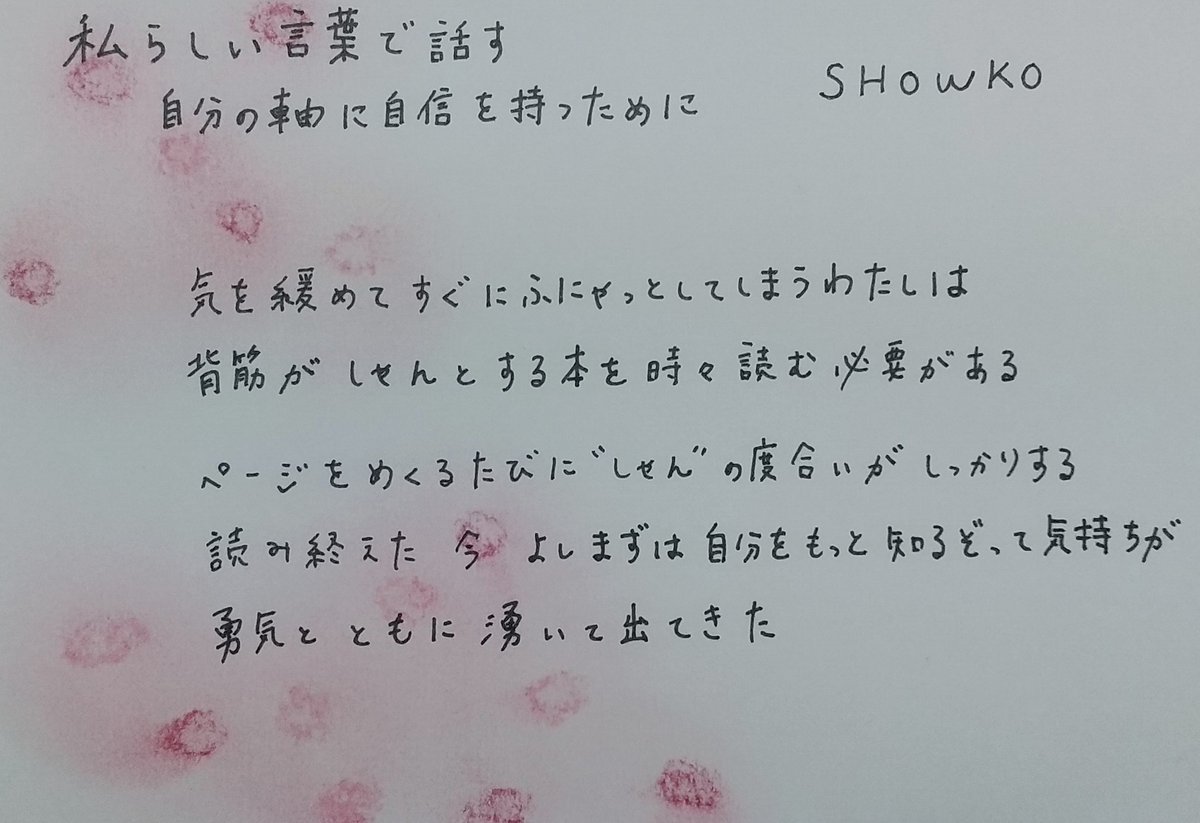 私らしい言葉で話す
自分の軸に自信を持つために
SHOWKO
気を緩めてすぐにふにゃっとしてしまうわたしは
背筋がしゃんとする本を時々読む必要がある
ページをめくるたびに"しゃん"の度合いがしっかりする
読み終えた 今 よしまずは自分をもっと知るぞって気持ちが
勇気とともに湧いて出てきた